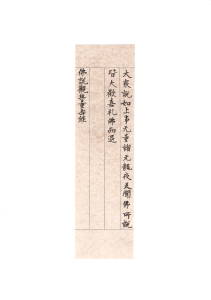 大衆說如上事无量諸天龍夜叉聞佛所說
皆大歡喜礼佛而退
佛說觀無量壽經